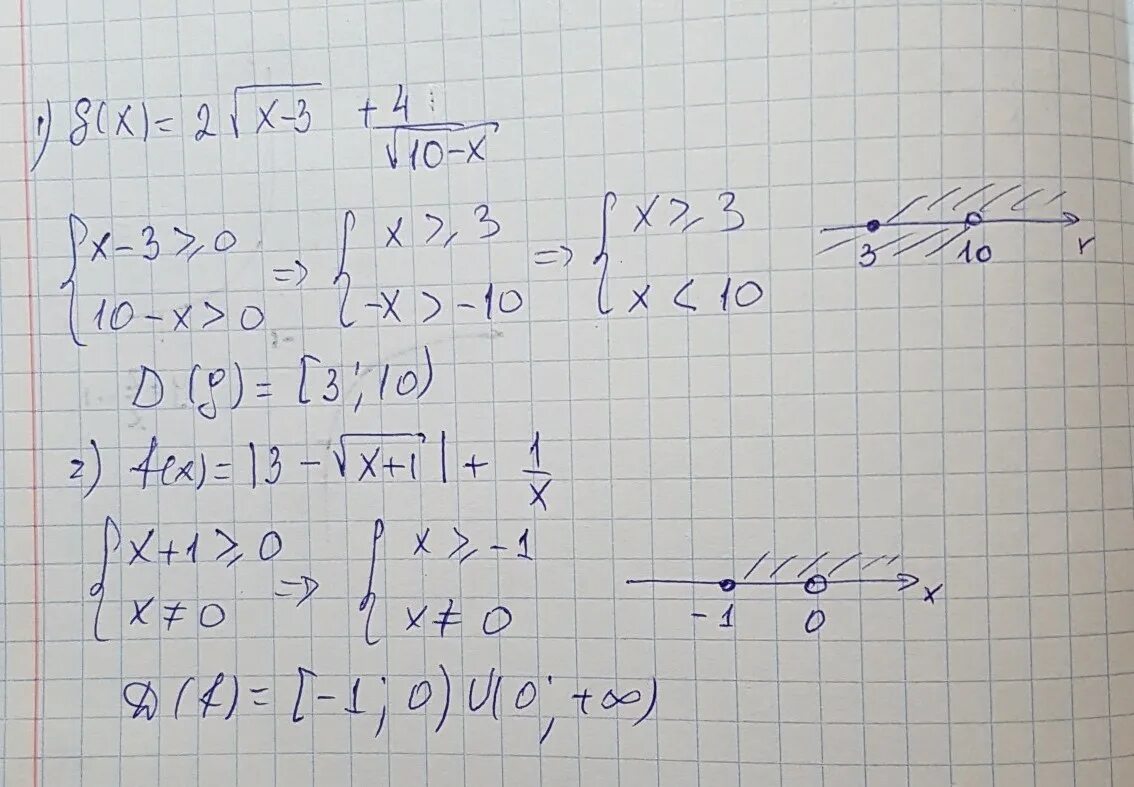 1) g(x) = 2√(x-3) + 4/√(10-x)
{ x-3 ≥ 0 => { x ≥ 3 => { x ≥ 3
{ 10-x > 0 { -x > -10 { x < 10
3 10 x
D(g) = [3; 10)
2) f(x) = |3 - √(x+1)| + 1/x
{ x+1 ≥ 0 => { x ≥ -1
{ x ≠ 0 { x ≠ 0
-1 0 x
D(f) = [-1; 0) U (0; +∞)